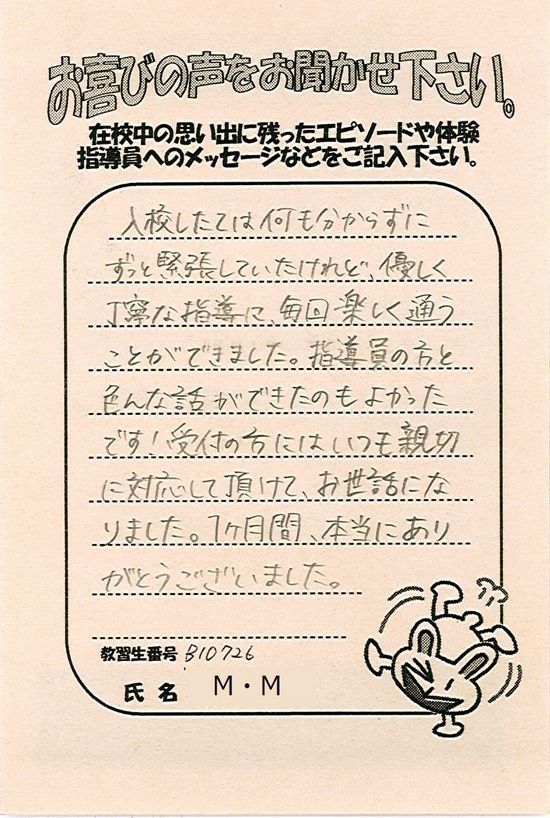 お喜びの声をお聞かせ下さい。
在校中の思い出に残ったエピソードや体験
指導員へのメッセージなどをご記入下さい。
入校したては何も分からずに
ずっと緊張していたけれど、優しく
丁寧な指導に、毎回楽しく通う
ことができました。指導員の方と
色んな話ができたのもよかった
です!受付の方にはいつも親切
に対応して頂けて、お世話にな
りました。1ヶ月間、本当にあり
がとうございました。
教習生番号 B10726
氏名 M・M